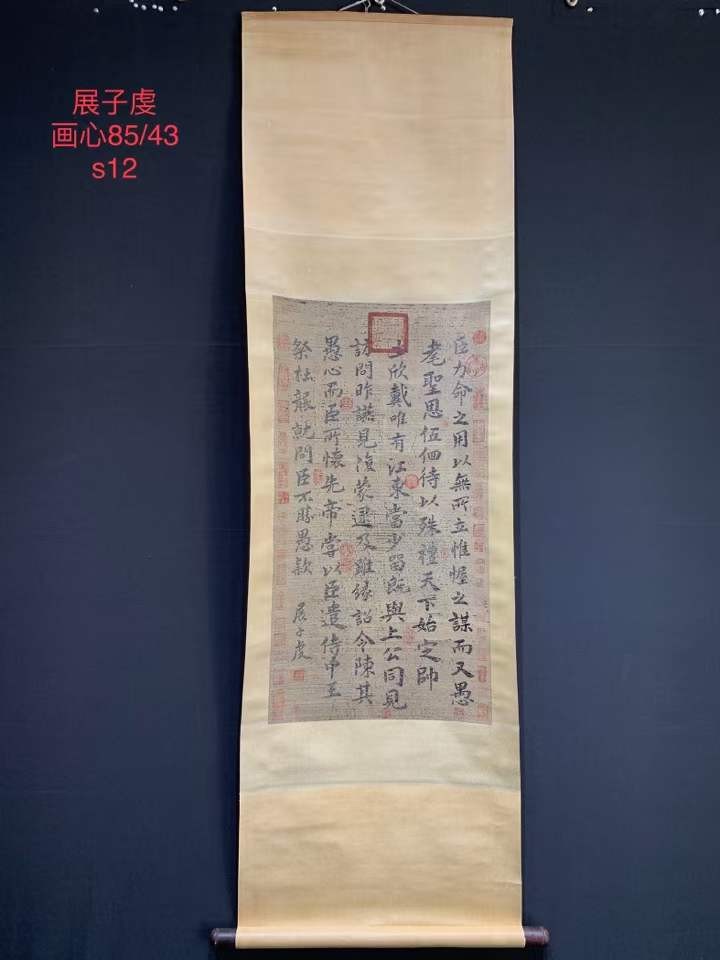 展子虔
画心85/43
s12
臣力命之用以無所立惟幄之謀而又愚
耄聖恩伍佪待以殊禮天下始定帥
士欣戴唯有江東當少留既與上公同見
訪問昨讌見復蒙逮及雖緣詔令陳其
愚心而臣所懷先帝嘗以臣遣侍中王
祭杜襲就問臣不勝愚款
展子虔